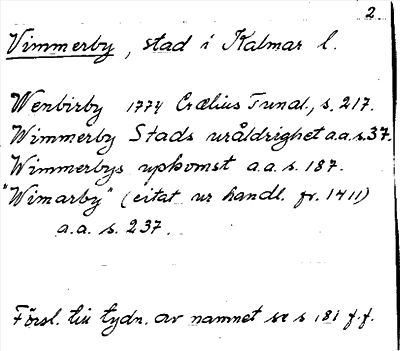 2.
Vimmerby, stad i Kalmar l.
Wenbirby 1774 Crælius Tunal., s. 217.
Wimmerby Stads uråldrighet a.a.s.37.
Wimmerbys upkomst a.a. s. 187.
"Wimarby" (citat ur handl. fr. 1411)
a.a. s. 237.
Försl. till tydn. av namnet se s 181 f.f.